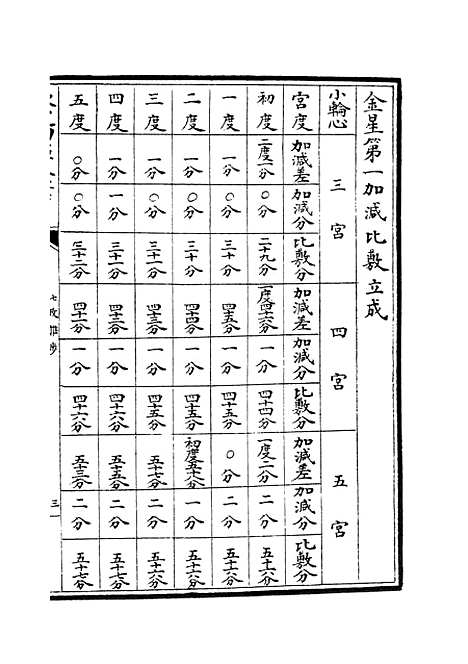 金星第一加減比敷立成
小輪心 三宮 四宮 五宮
宮度 加減差 加減分 比敷分 加減差 加減分 比敷分 加減差 加減分 比敷分
初度 二度一分 ○分 二十九分 一度四十六分 一分 四十四分 一度二分 二分 五十六分
一度 一分 ○分 三十分 四十五分 一分 四十五分 ○分 二分 五十六分
二度 一分 ○分 三十分 四十四分 一分 四十五分 初度五十八分 一分 五十六分
三度 一分 ○分 三十一分 四十三分 一分 四十五分 五十七分 二分 五十六分
四度 一分 一分 三十一分 四十二分 一分 四十六分 五十五分 二分 五十七分
五度 ○分 ○分 三十二分 四十一分 一分 四十六分 五十三分 二分 五十七分
七政推步
三